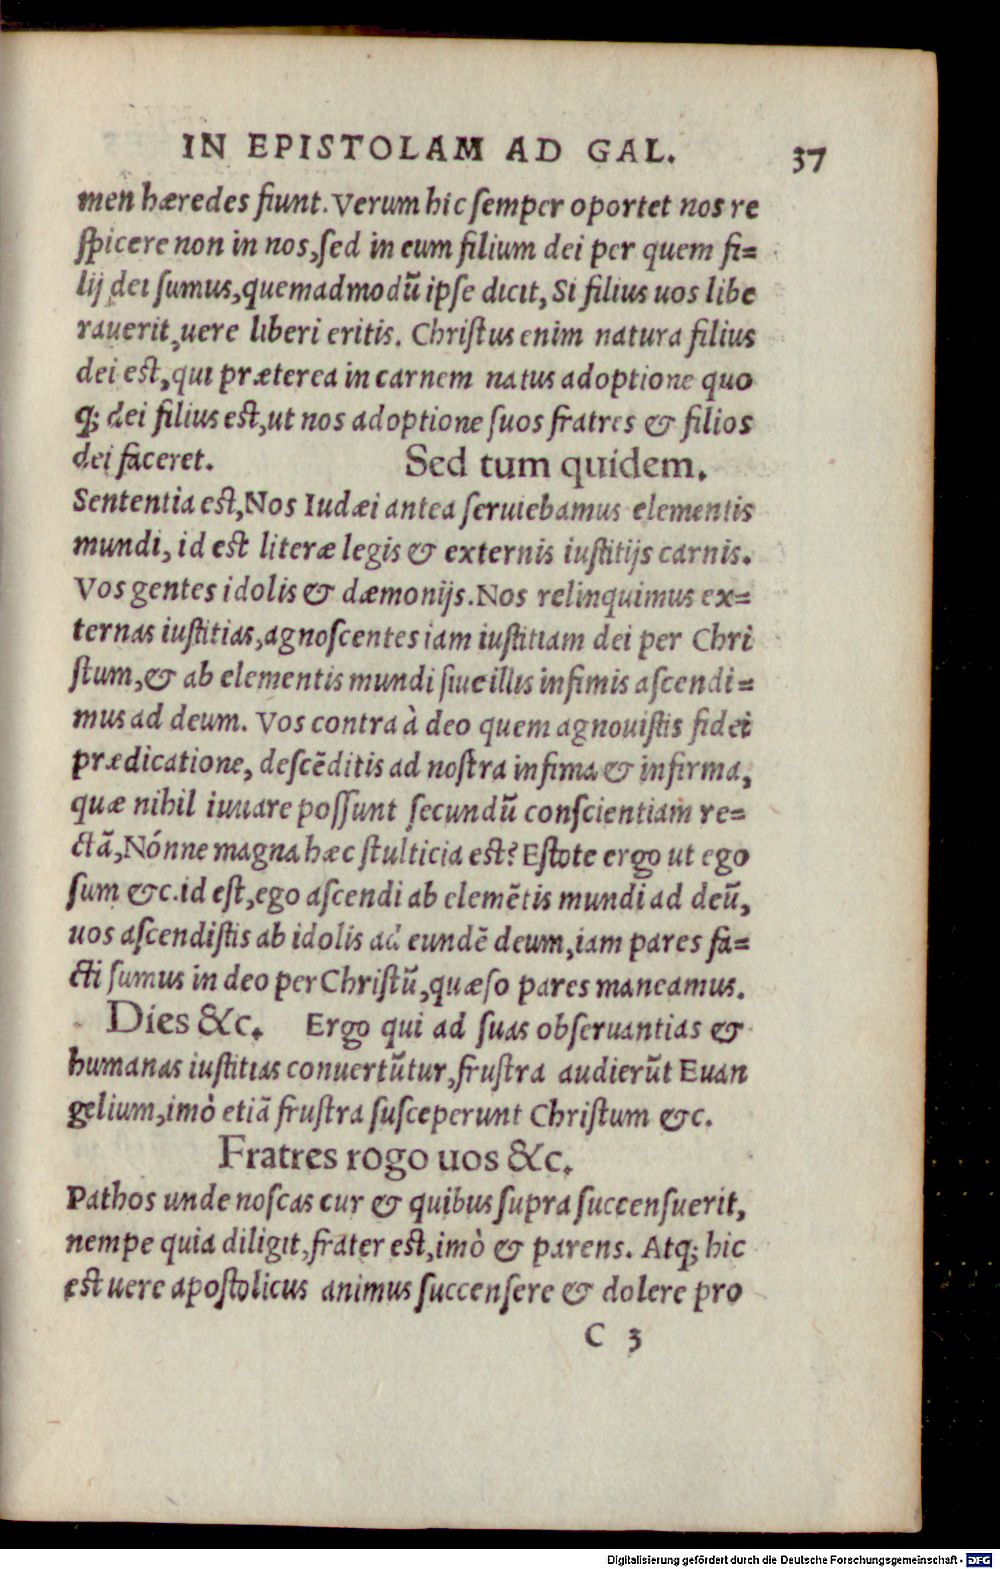 IN EPISTOLAM AD GAL. 37
men hæredes fiunt. Verum hic ſemper oportet nos re
ſpicere non in nos, ſed in eum filium dei per quem fi=
lij dei ſumus, quemadmodũ ipſe dicit, Si filius uos libe
rauerit, uere liberi eritis. Chriſtus enim natura filius
dei eſt, qui præterea in carnem natus adoptione quo
q; dei filius eſt, ut nos adoptione ſuos fratres & filios
dei faceret. Sed tum quidem.
Sententia eſt, Nos Iudæi antea ſeruiebamus elementis
mundi, id est literæ legis & externis iuſtitijs carnis.
Vos gentes idolis & dæmonijs. Nos relinquimus ex=
ternas iuſtitias, agnoſcentes iam iuſtitiam dei per Chri
ſtum, & ab elementis mundi ſiue illis infimis aſcendi=
mus ad deum. Vos contra à deo quem agnouiſtis fidei
prædicatione, deſcẽditis ad noſtra infima & infirma,
quæ nihil iuuare poſſunt ſecundũ conſcientiam re=
ctã, Nónne magna hæc ſtulticia eſt? Eſtote ergo ut ego
ſum &c. id eſt, ego aſcendi ab elemẽtis mundi ad deũ,
uos aſcendiſtis ab idolis ad eundẽ deum, iam pares fa=
cti ſumus in deo per Chriſtũ, quæſo pares maneamus.
Dies &c. Ergo qui ad ſuas obſeruantias &
humanas iuſtitias conuertũtur, fruſtra audierũt Euan
gelium, imò etiã fruſtra ſuſceperunt Chriſtum &c.
Fratres rogo uos &c.
Pathos unde noſcas cur & quibus ſupra ſuccenſuerit,
nempe quia diligit, frater eſt, imò & parens. Atq; hic
eſt uere apoſtolicus animus ſuccenſere & dolere pro
C 3
Digitalisierung gefördert durch die Deutsche Forschungsgemeinschaft - DFG